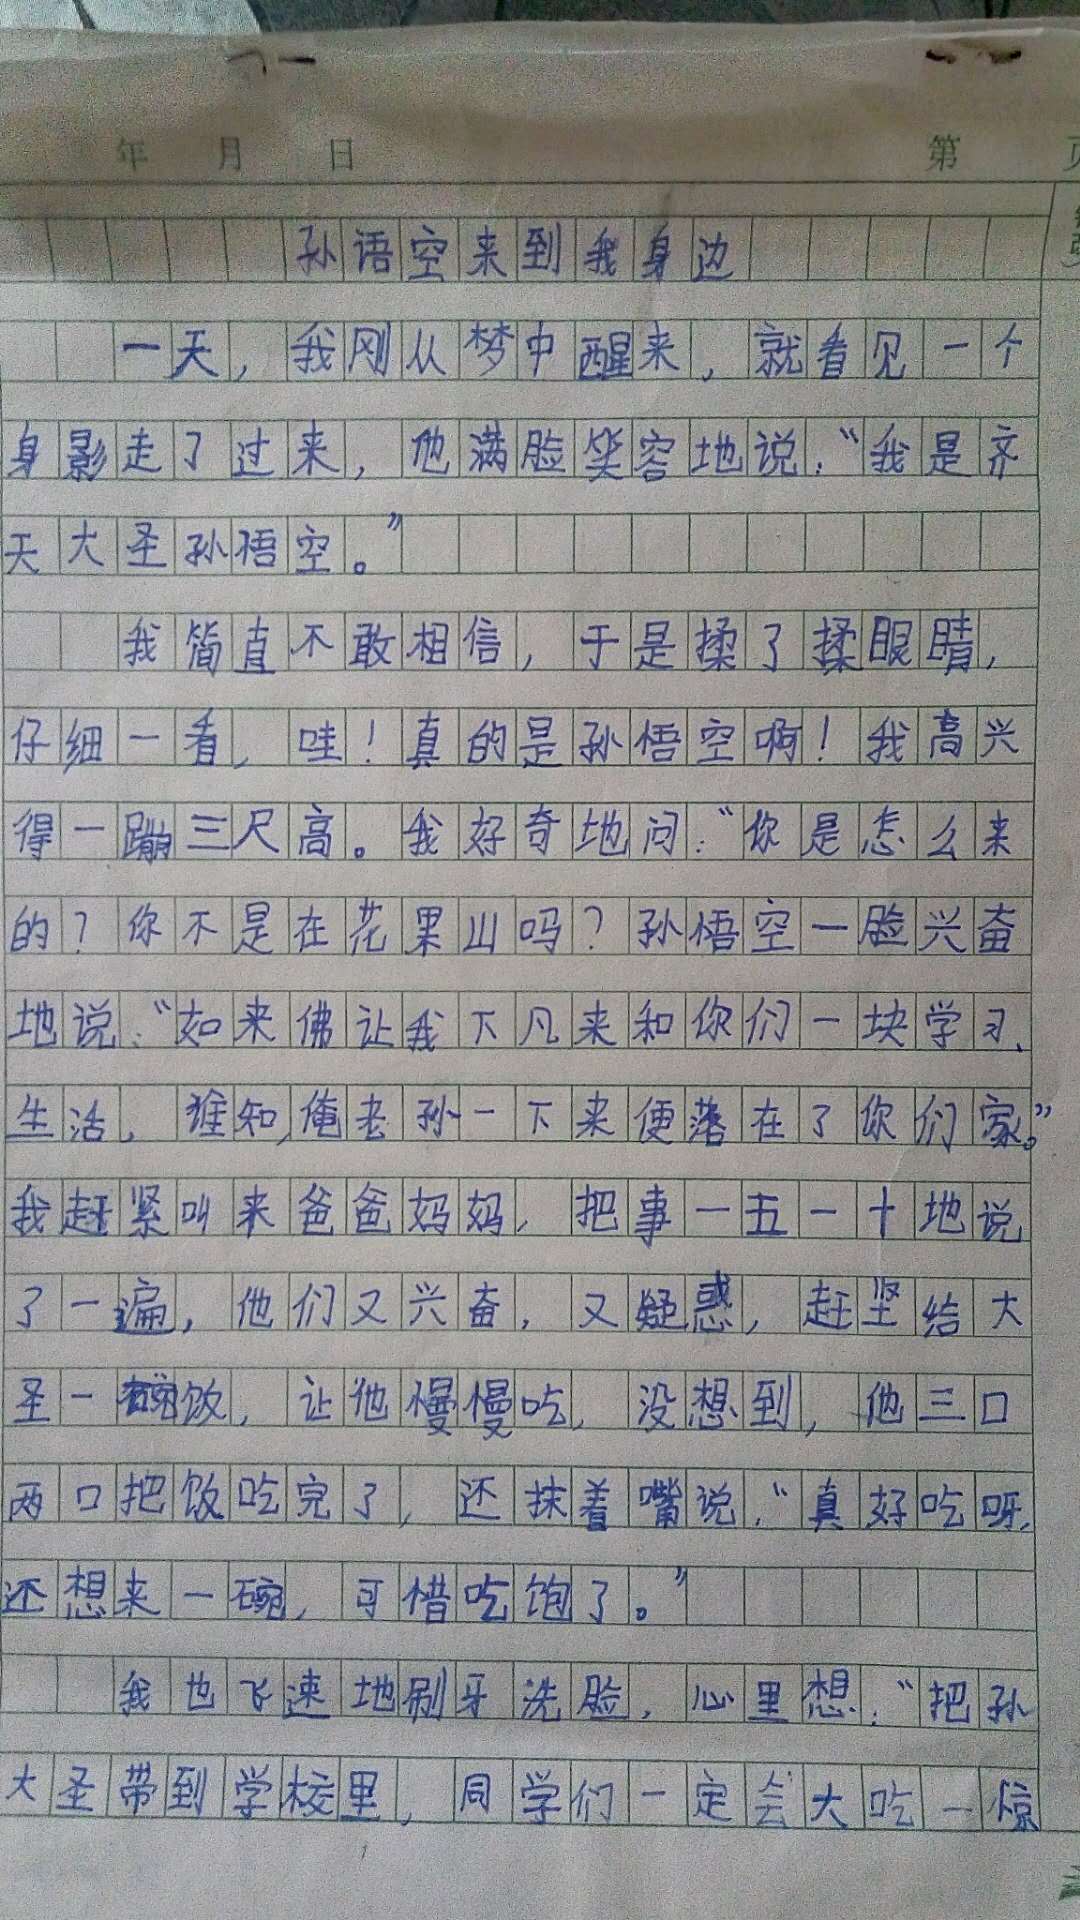 年 月 日 第 页
孙语空来到我身边
一天,我刚从梦中醒来,就看见一个
身影走了过来,他满脸笑容地说:“我是齐
天大圣孙悟空。”
我简直不敢相信,于是揉了揉眼睛,
仔细一看,哇!真的是孙悟空啊!我高兴
得一蹦三尺高。我好奇地问:“你是怎么来
的?你不是在花果山吗?孙悟空一脸兴奋
地说:“如来佛让我下凡来和你们一块学习、
生活,谁知,俺老孙一下来便落在了你们家。”
我赶紧叫来爸爸妈妈,把事一五一十地说
了一遍,他们又兴奋,又疑惑,赶坚给大
圣一碗饭,让他慢慢吃,没想到,他三口
两口把饭吃完了,还抹着嘴说:“真好吃呀,
还想来一碗,可惜吃饱了。”
我也飞速地刷牙洗脸,心里想:“把孙
大圣带到学校里,同学们一定会大吃一惊